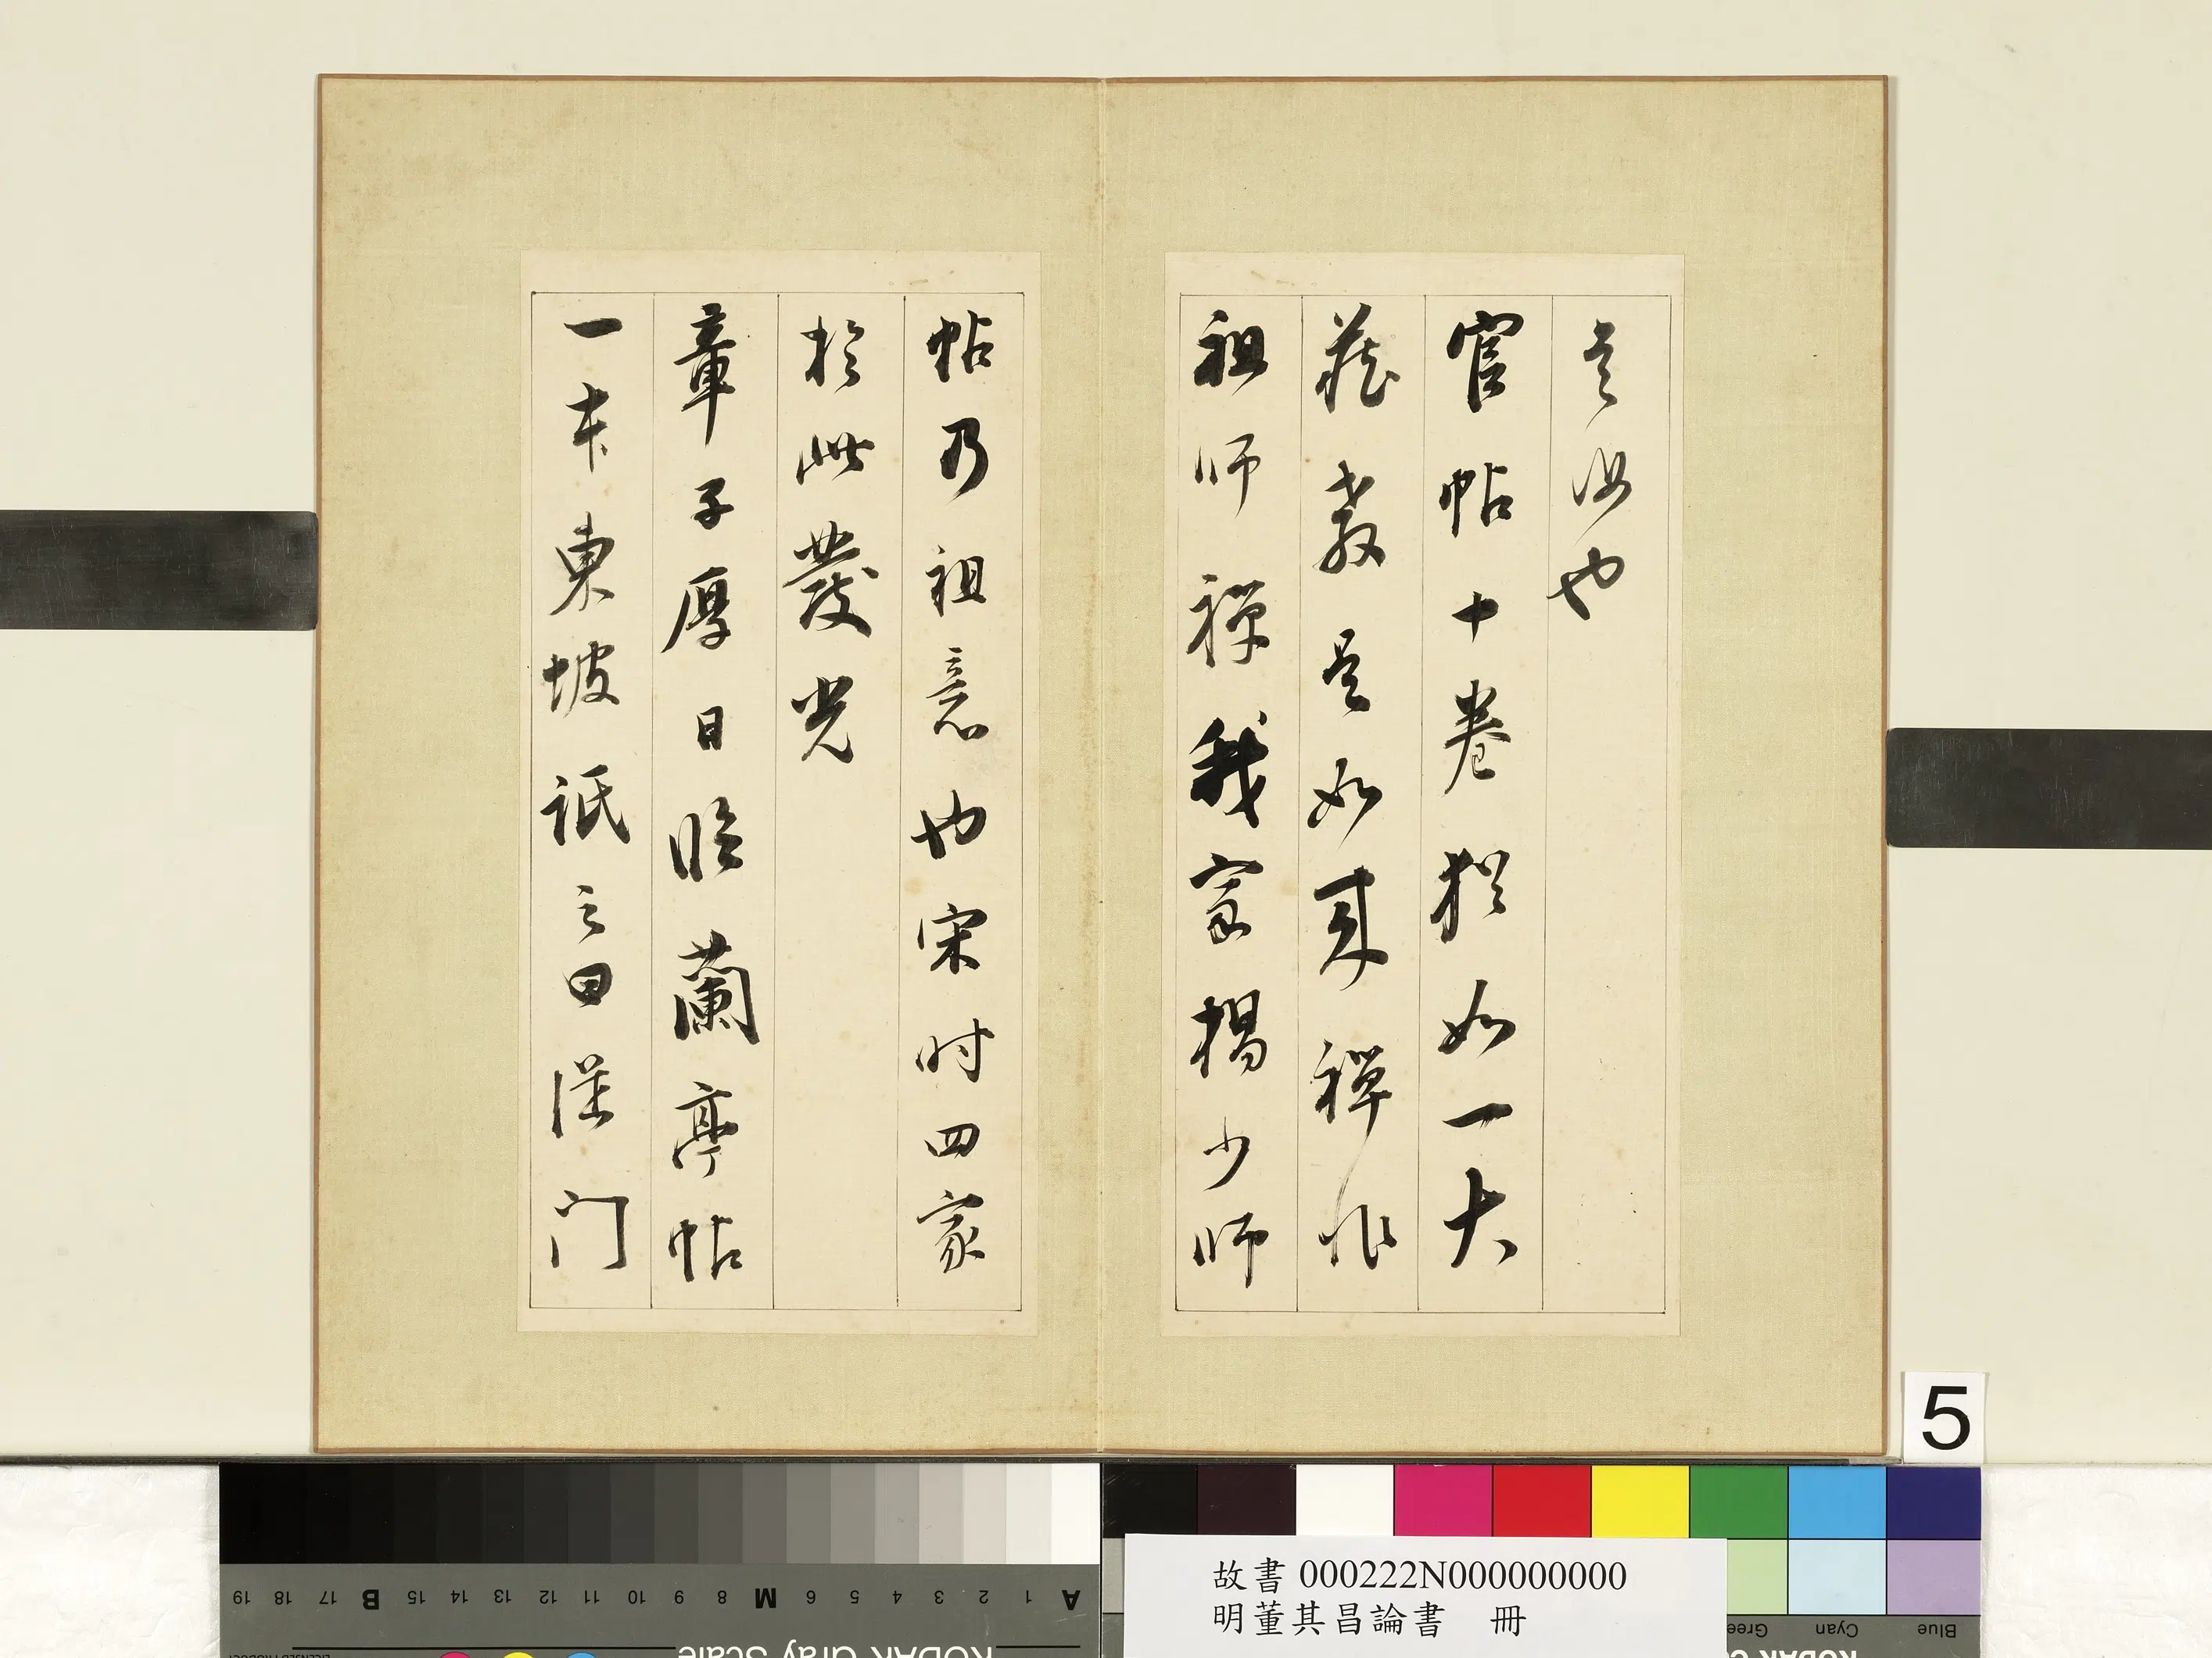 是汝也
官帖十卷猶如一大
藏教是如來禪非
祖師禪我家楊少師
帖乃祖意也宋時四家
於此發光
章子厚日臨蘭亭帖
一本東坡詆之曰從門
5
A 1 2 3 4 5 6 M 8 9 10 11 12 13 14 15 B 17 18 19
KODAK Gray Scale
Blue Cyan Green
故書 000222N000000000
明董其昌論書 冊